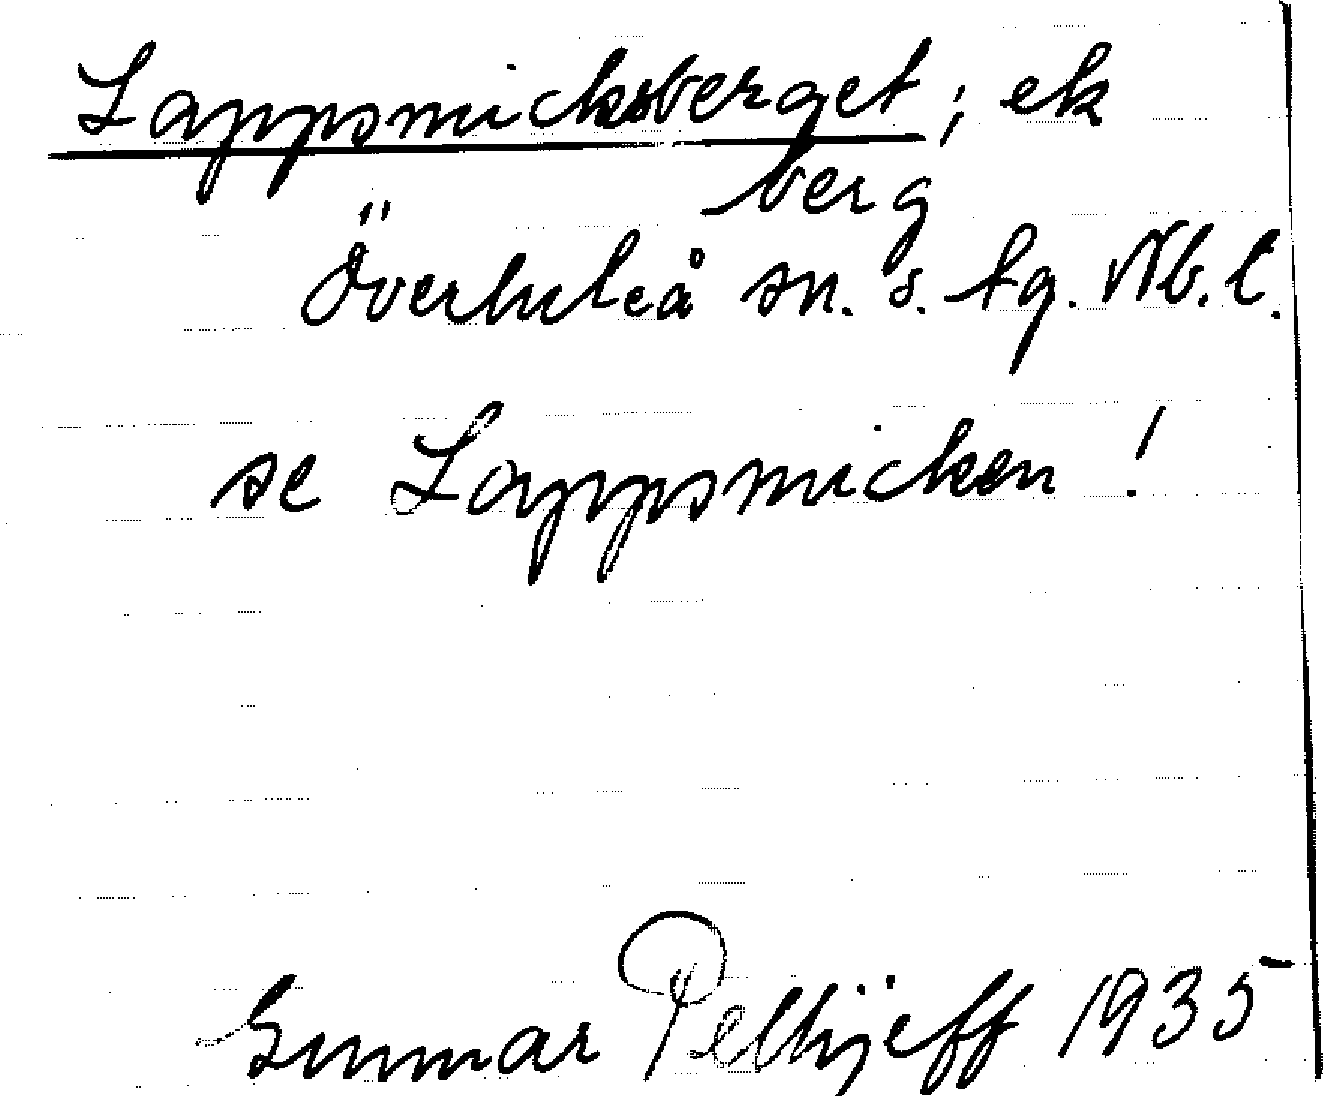 Lappsmicksberget; ek
berg
Överluleå sn. s. tg. Nb. l.
se Lappsmicken!
Gunnar Pellijeff 1935